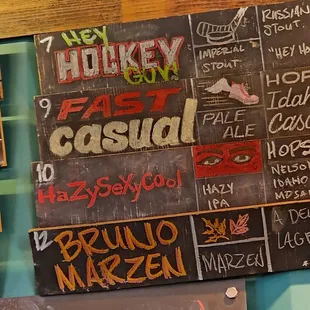 7
HEY
HOCKEY
GUY!
IMPERIAL
STOUT
RUSSIAN
STOUT.
"HEY
9
FAST
casual
PALE
ALE
HOPS
Idaho
Casc
10
HaZySeXyCool
HAZY
IPA
HOPS
NELSO
IDAHO
MDSA
12
BRUNO
MARZEN
MARZEN
A DEL
LAGE